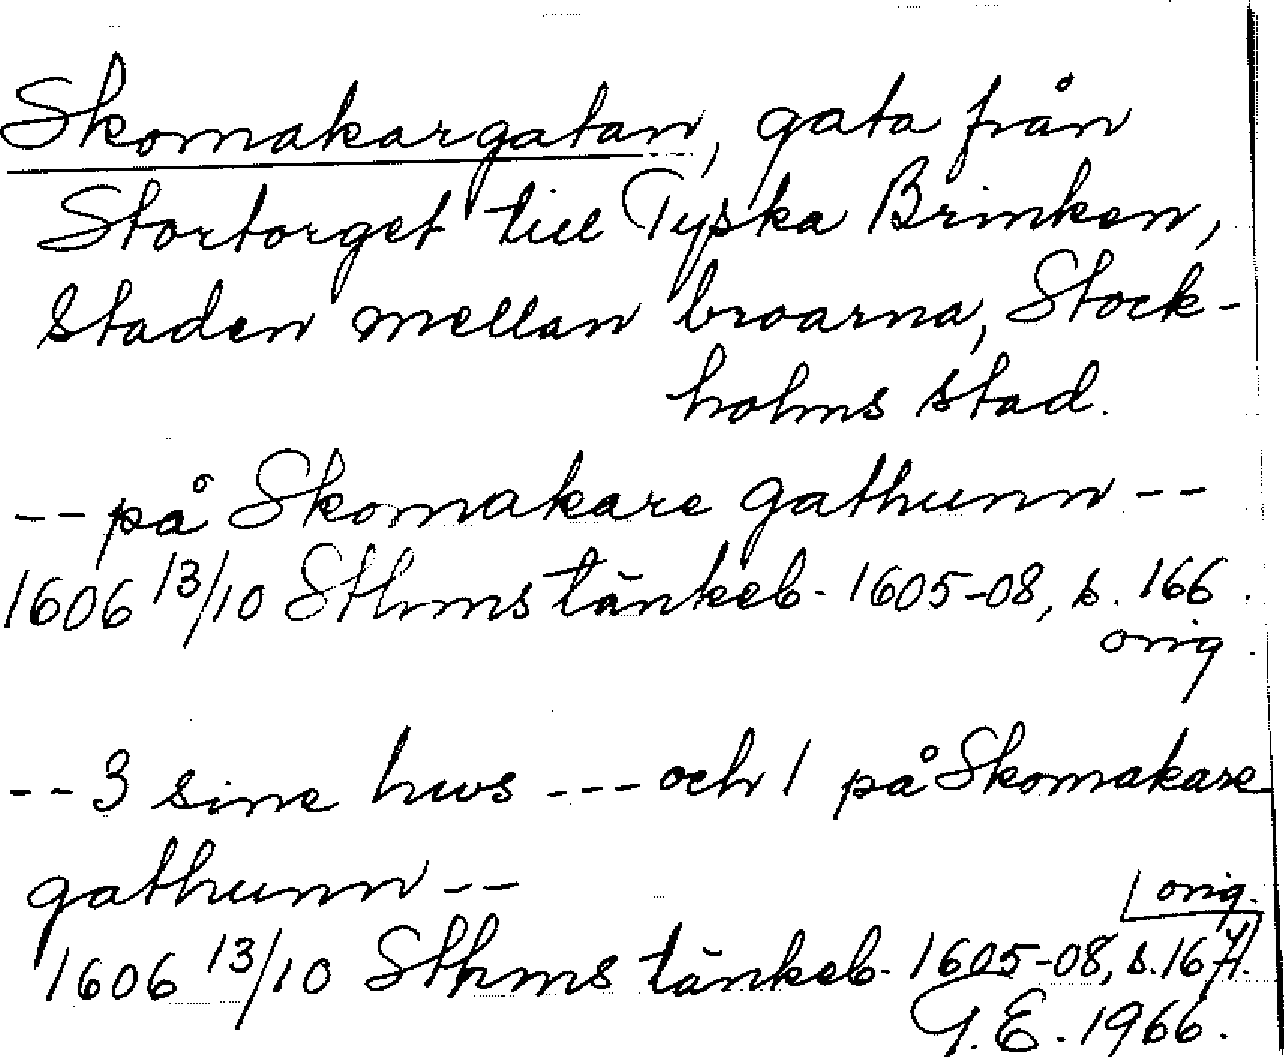 Skomakargatan, gata från
Stortorget till Tyska Brinken,
Staden mellan broarna, Stock-
holms stad.
-- på Skomakare gathunn --
1606 13/10 Sthms tänkeb. 1605-08, s. 166.
orig.
-- 3 sine hws --- och 1 på Skomakare
gathunn --
orig.
1606 13/10 Sthms tänkeb. 1605-08, s. 167.
G.E. 1966.